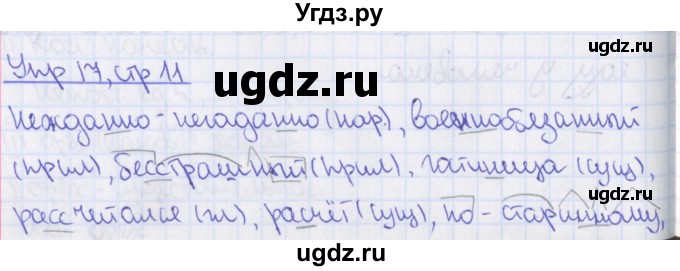 Угдз.ру
Упр 17, стр 11
ugdz.ru
ugdz.ru
Нежданно-негаданно (нар), военнообязанный
(прил), бесстрашный (прил), гатиница (сущ),
рассчитался (гл), расчёт (сущ), по-старинному,
ugdz.ru
ugdz.ru